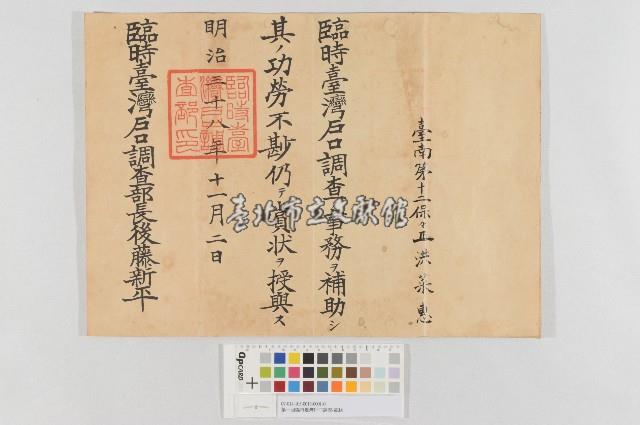 臺南第十二保々正 洪采惠
臨時臺灣戶口調查事務ヲ補助シ
其ノ功勞不尠仍テ賞狀ヲ授與ス
明治三十八年十一月二日
臨時臺灣戶口調查部長後藤新平
臨時臺灣戶口調查部印
臺北市立文獻館
QPCARD